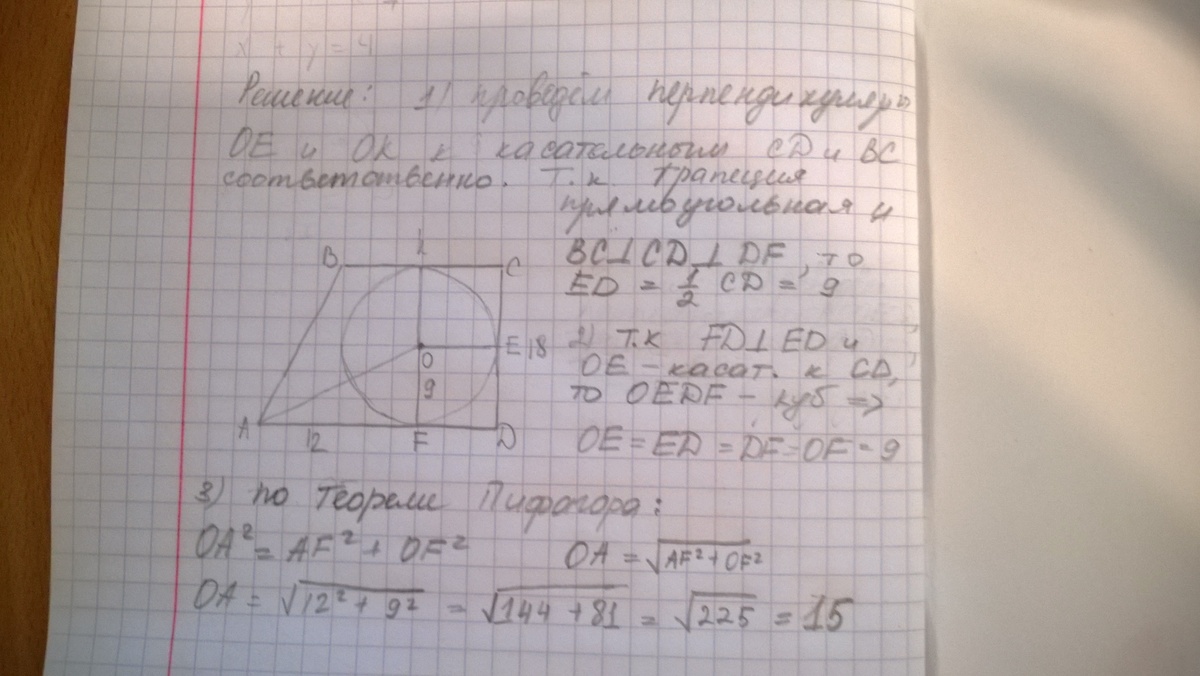 x + y = 4
Решение: 1) проведём перпендикуляры
OE и OK к касательным CD и BC
соответственно. Т.к трапеция
прямоугольная и
BC⊥CD⊥DF, то
ED = 1/2 CD = 9
2) Т.к FD⊥ED и
OE – касат. к CD,
то OEDF – куб =>
OE = ED = DF = OF = 9
B
C
O
E 18
9
A
12
F
D
3) по теореме Пифагора:
OA² = AF² + OF² OA = √AF² + OF²
OA = √12² + 9² = √144 + 81 = √225 = 15